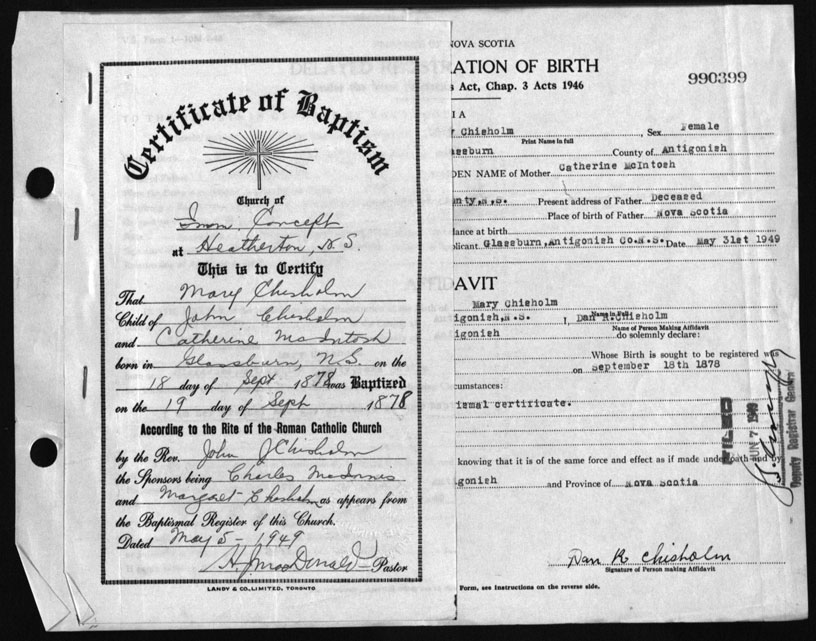 Certificate of Baptism
Church of
Imm. Concept
at Heatherton, N.S.
This is to Certify
That Mary Chisholm
Child of John Chisholm
and Catherine McIntosh
born in Glassburn, N.S. on the
18 day of Sept 1878 was Baptized
on the 19 day of Sept 1878
According to the Rite of the Roman Catholic Church
by the Rev. John J Chisholm
the Sponsors being Charles McInnis
and Margaret Chisholm as appears from
the Baptismal Register of this Church.
Dated May 5 - 1949
H. J. MacDonald Pastor
LANDY & CO., LIMITED, TORONTO
NOVA SCOTIA
ATION OF BIRTH
s Act, Chap. 3 Acts 1946
990399
IA
y Chisholm Sex Female
Print Name in full
assburn County of Antigonish
DEN NAME of Mother Catherine McIntosh
unty,N.S. Present address of Father Deceased
Place of birth of Father Nova Scotia
dance at birth
plicant Glassburn, Antigonish Co.N.S. Date May 31st 1949
AVIT
Mary Chisholm
Name in Full
igonish, N.S. I, Dan R. Chisholm
Name of Person Making Affidavit
igonish do solemnly declare:
Whose Birth is sought to be registered was
on September 18th 1878
cumstances:
ismal certificate.
FILED
1949
Deputy Registrar General
knowing that it is of the same force and effect as if made under oath and by
igonish and Province of Nova Scotia
Dan R Chisholm
Signature of Person making Affidavit
Form, see instructions on the reverse side.